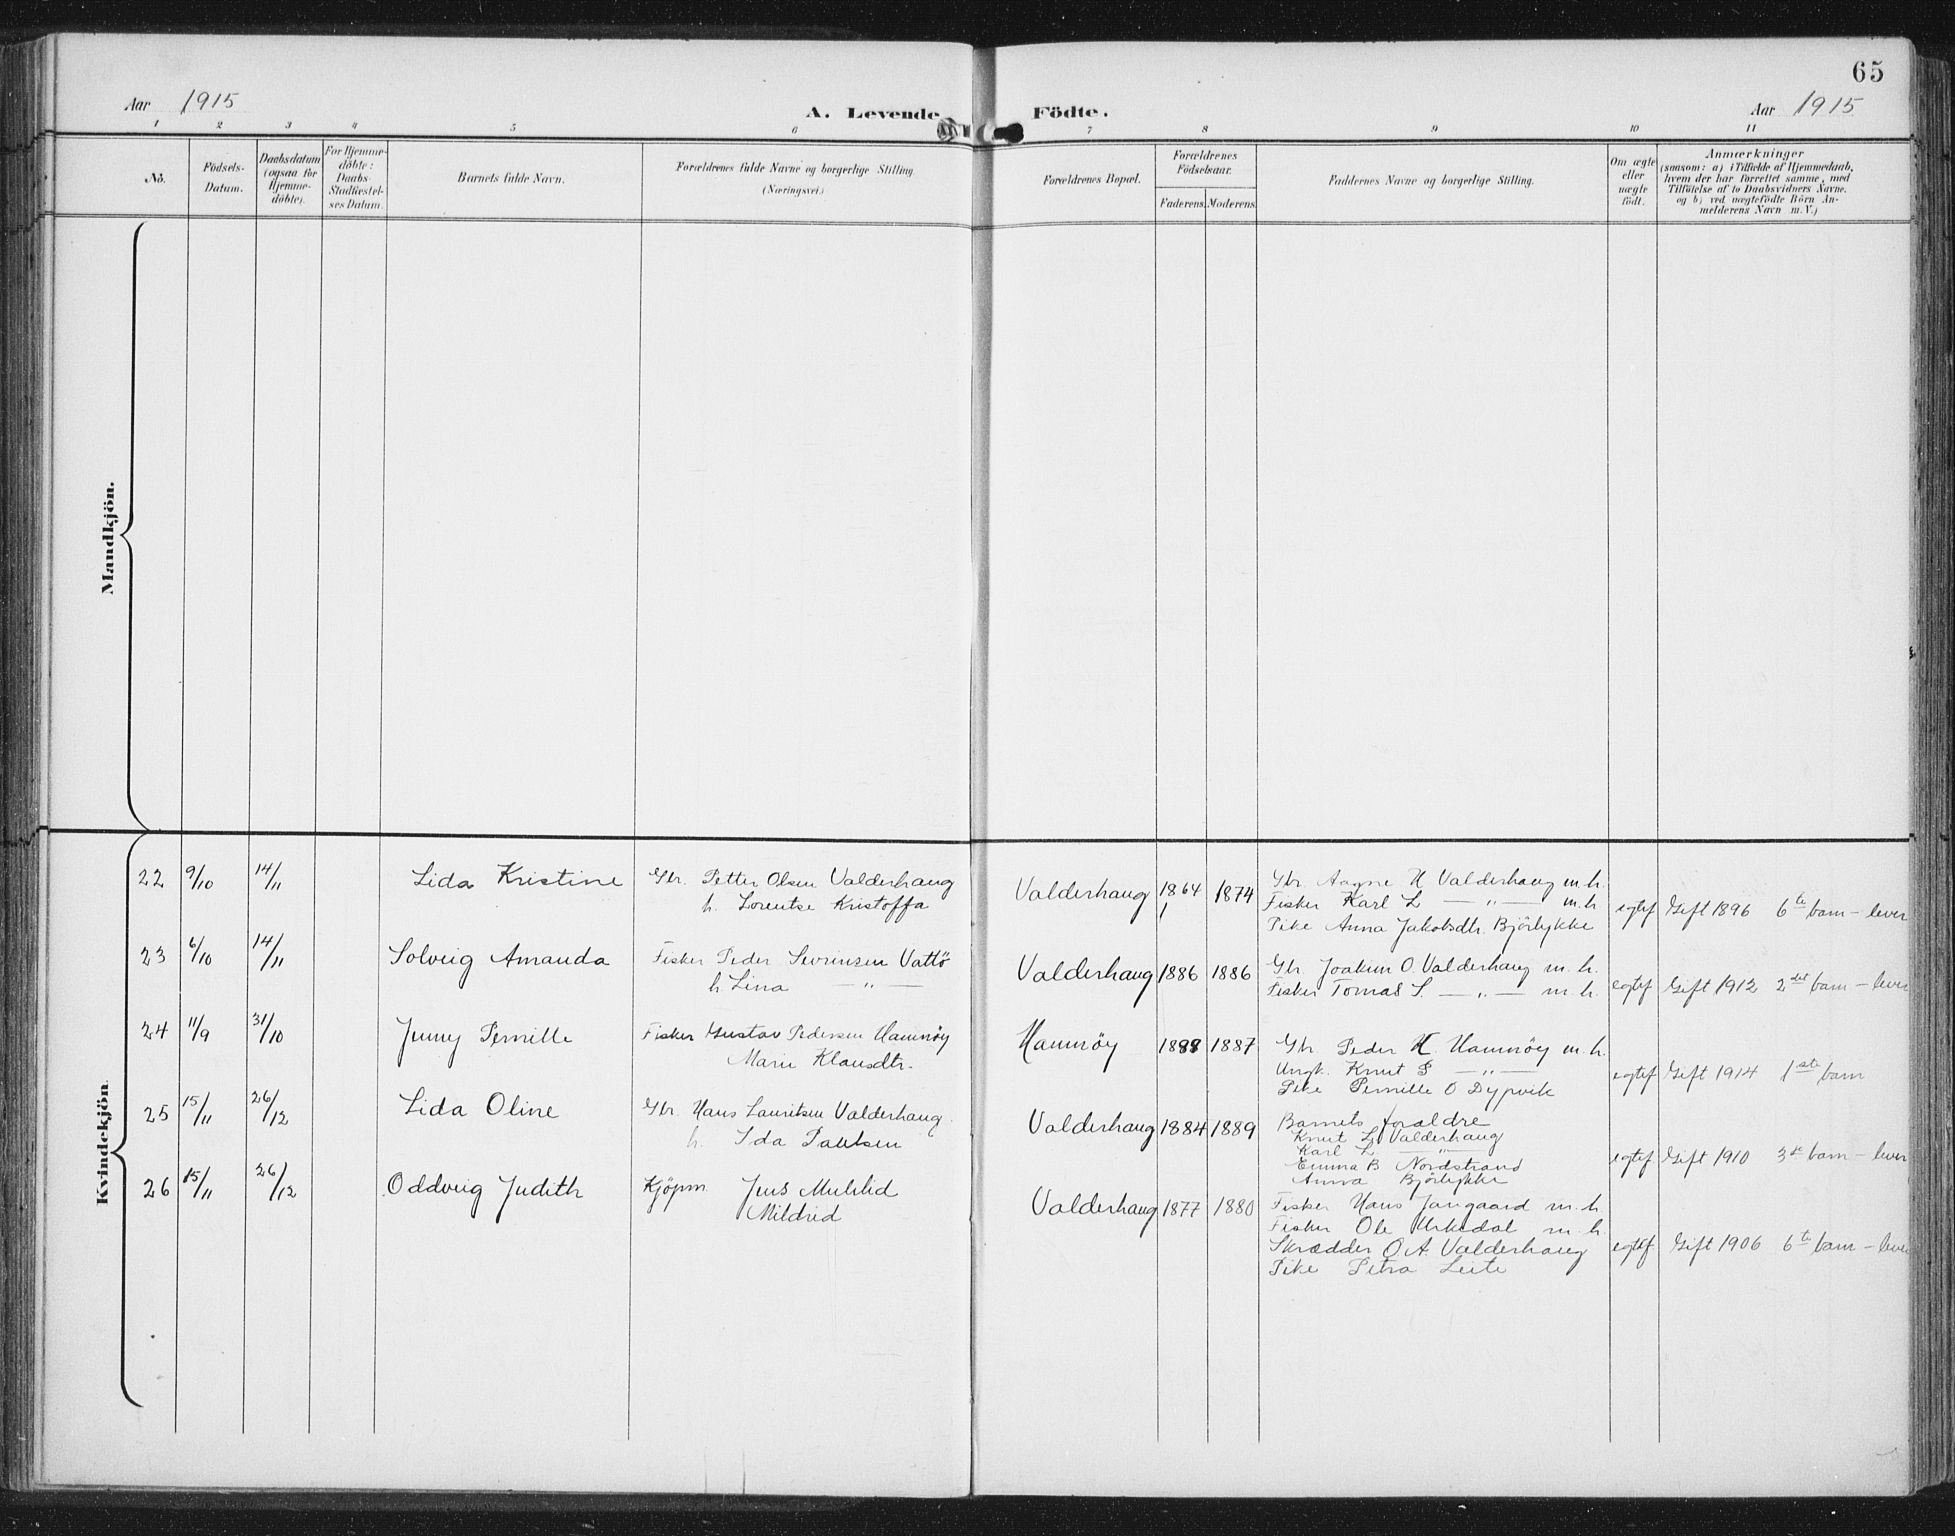 65
Aar 1915
A. Levende Födte.
Aar 1915
1 2 3 4 5 6 7 8 9 10 11
No.
Födsels-Datum.
Daabsdatum (ogsaa for Hjemme-döbte).
For Hjemme-döbte: Daabs-Stadfæstel-ses Datum.
Barnets fulde Navn.
Forældrenes fulde Navne og borgerlige Stilling (Næringsvei.)
Forældrenes Bopæl.
Forældrenes Födselsaar.
Faderens. Moderens.
Faddernes Navne og borgerlige Stilling.
Om ægte eller uægte födt.
Anmærkninger
(saasom: a) i Tilfælde af Hjemmedaab,
hvem der har forrettet samme, med
Tilföielse af to Daabsvidners Navne.
og b) ved uægtefödte Börn An-
melderens Navn m. V.)
Mandkjön.
Kvindekjön.
22 9/10 14/11 Lida Kristine Gbr. Petter Olsen Valderhaug
h. Lorentse Kristoffa
Valderhaug 1864 1874
Gbr. Aagne H Valderhaug m.h.
Fisker Karl L — „ — m.h
Pike Anna Jakobsdtr. Björlykke
egtef Gift 1896 6te barn – lever
23 6/10 14/11 Solveig Amanda Fisker Peder Severinsen Vattö
h. Lina — „ —
Valderhaug 1886 1886
Gbr. Joakim O. Valderhaug m.h.
Fisker Tomas S. — „ — m.h.
egtef Gift 1912 2det barn – lever
24 11/9 31/10 Jenny Pernille Fisker Gustav Pedersen Hamnöy
Marie Klausdtr.
Hamnöy 1888 1887
Gbr. Peder H. Hamnöy m.h.
Ungk. Knut P — „ —
Pike Pernille O Dypvik
egtef Gift 1914 1ste barn
25 15/11 26/12 Lida Oline Gbr. Hans Lauritsen Valderhaug.
h. Ida Paulsen
Valderhaug 1884 1889
Barnets foraldre
Knut L Valderhaug
Karl L — „ —
Emma B Nordstrand
Anna Björlykke
egtef. Gift 1910 3de barn – lever
26 15/11 26/12 Oddveig Judith Kjöpm. Jens Muklid
Mildrid
Valderhaug 1877 1880
Fisker Hans Jangaard m.h.
Fisker Ole Urkedal m.h
Skrædder O A. Valderhaug
Pike Petra Leite
egtef Gift 1906 6te barn – lever